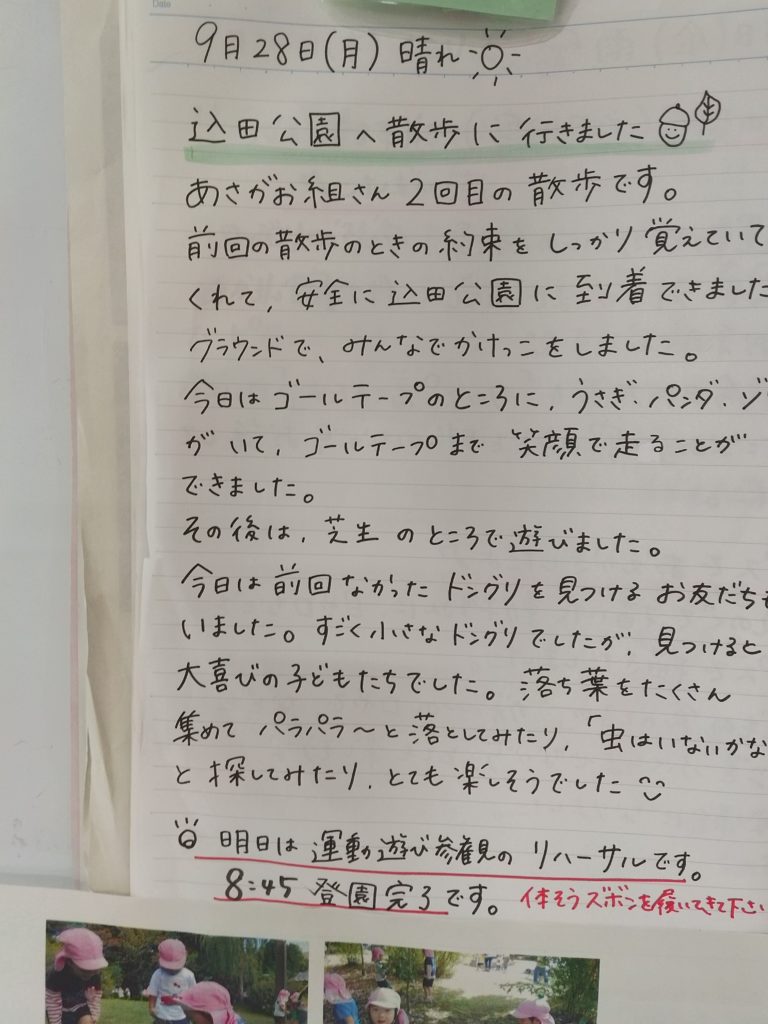 Date
9月28日(月) 晴れ
込田公園へ散歩に行きました
あさがお組さん2回目の散歩です。
前回の散歩のときの約束をしっかり覚えていて
くれて、安全に込田公園に到着できました
グラウンドで、みんなでかけっこをしました。
今日はゴールテープのところに、うさぎ・パンダ・ゾ
がいて、ゴールテープまで笑顔で走ることが
できました。
その後は、芝生のところで遊びました。
今日は前回なかったドングリを見つけるお友だちも
いました。すごく小さなドングリでしたが、見つけると
大喜びの子どもたちでした。落ち葉をたくさん
集めてパラパラ〜と落としてみたり、「虫はいないかな
と探してみたり、とても楽しそうでした
明日は運動遊び参観のリハーサルです。
8:45 登園完了です。体そうズボンを履いてきて下さい